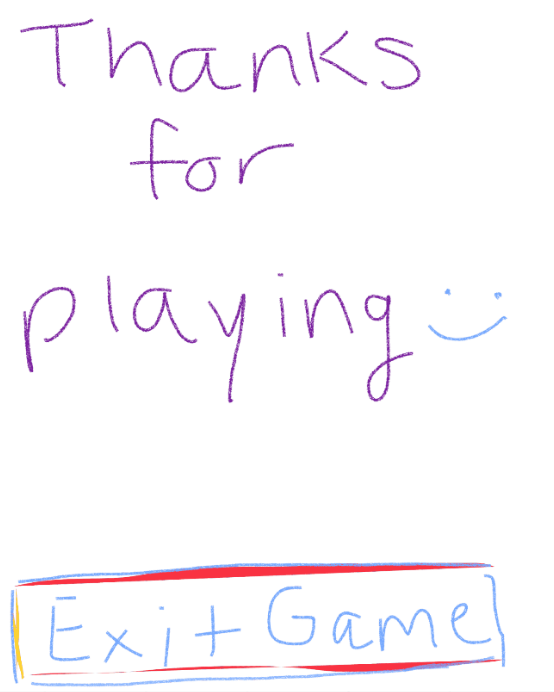 Thanks
for
playing
Exit Game